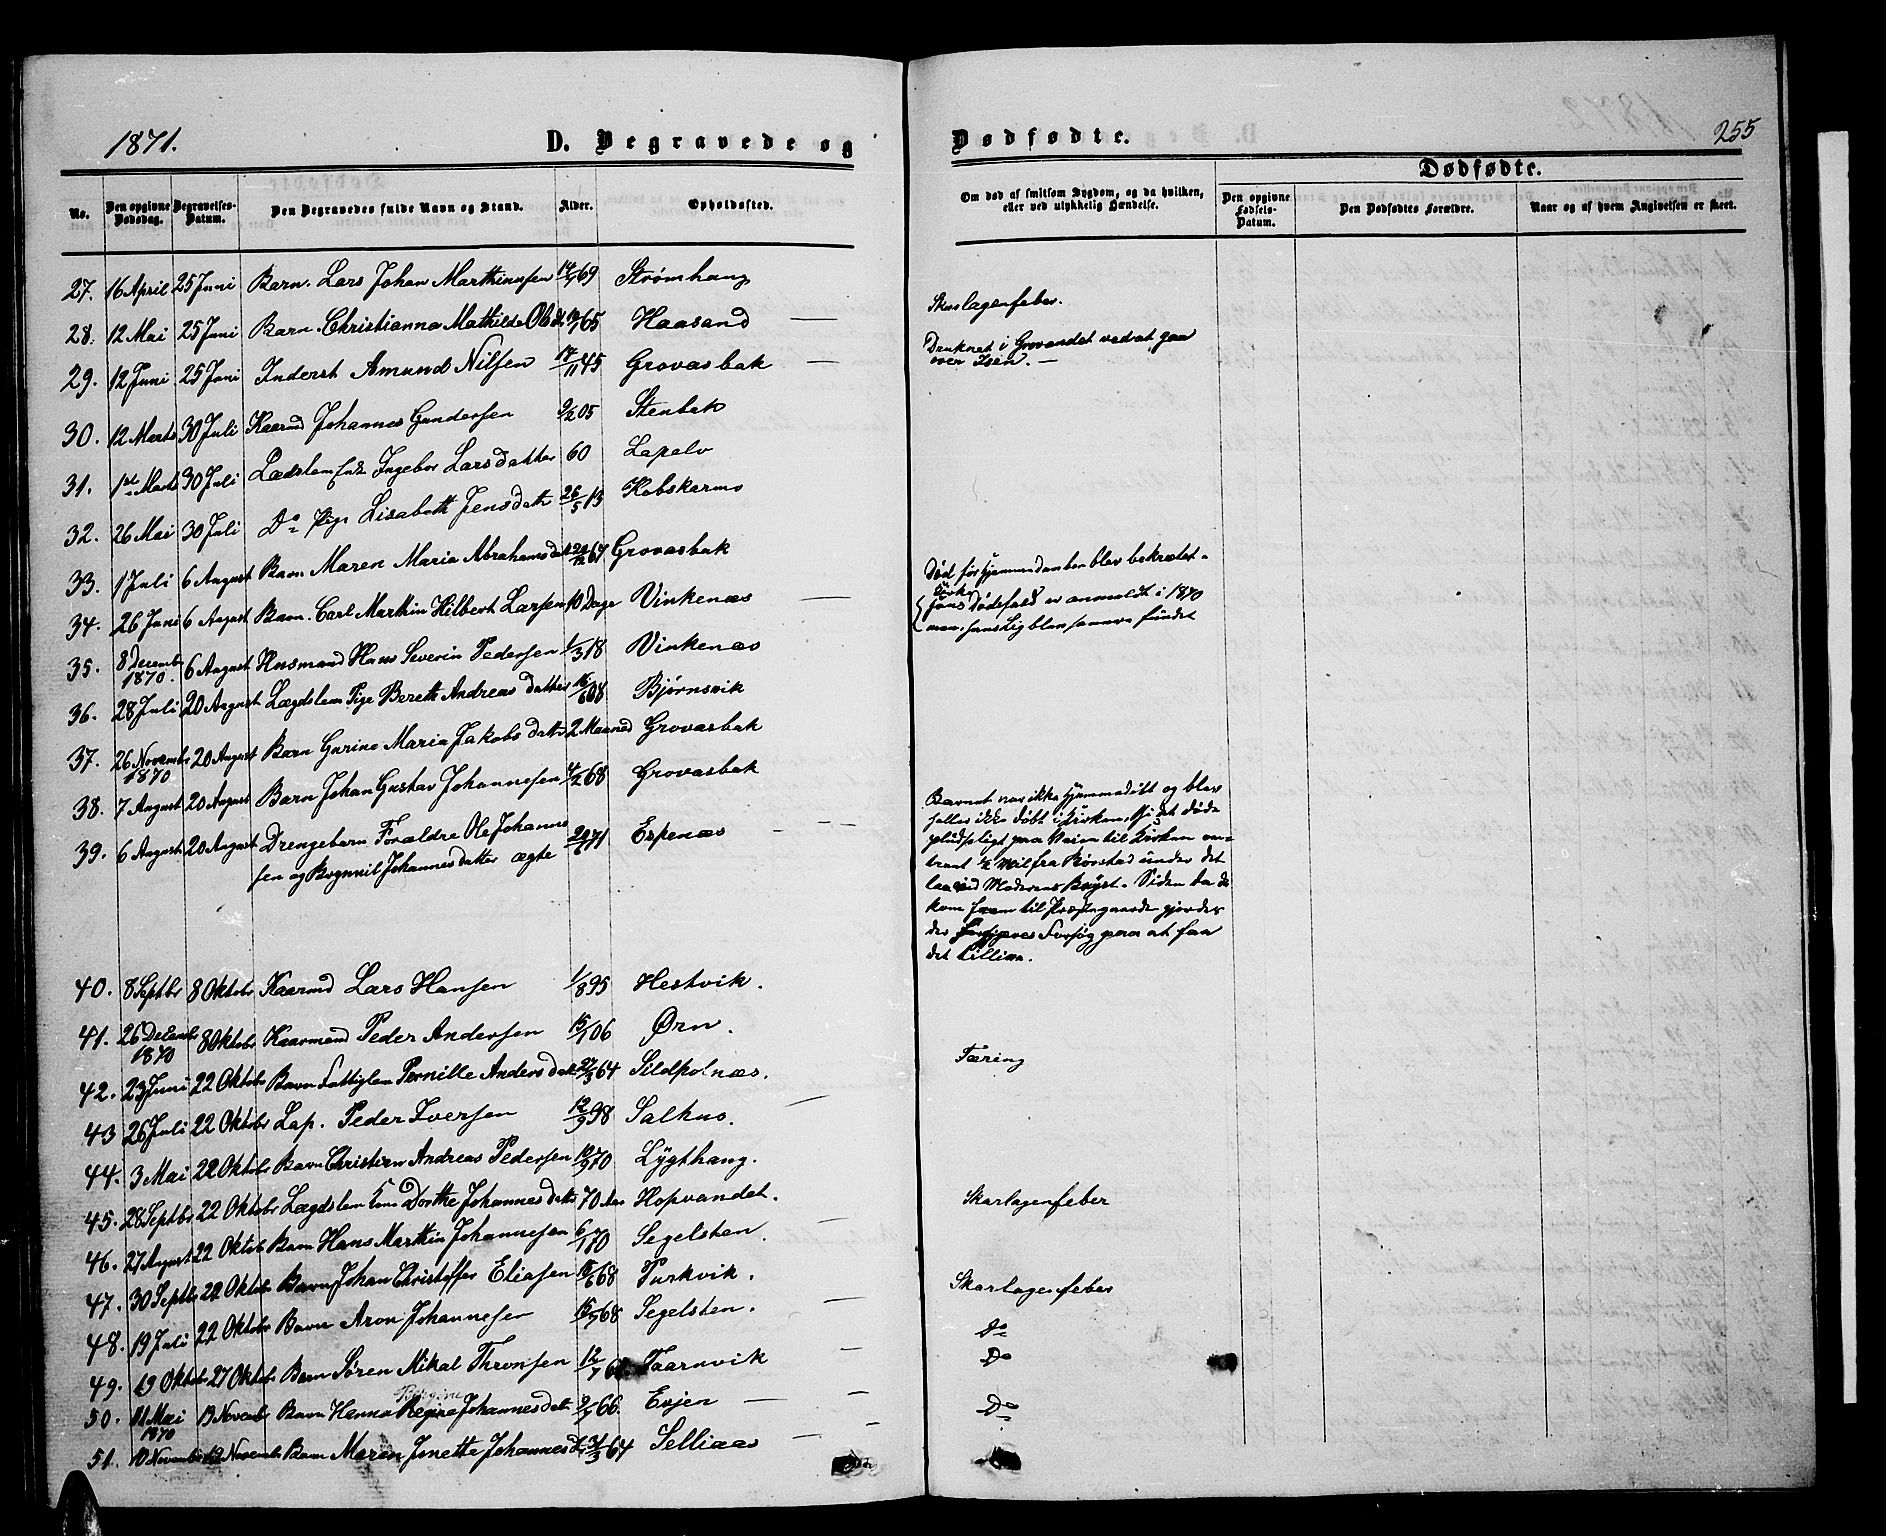 1871.
D. Begravede og
Dødfødte.
255
No.
Den opgivne Dødsdag.
Begravelses-Datum.
Den Begravedes fulde Navn og Stand.
Alder.
Opholdssted.
Om død af smitsom Sygdom, og da hvilken, eller ved ulykkelig Hændelse.
Dødfødte.
Den opgivne Fødsels-Datum.
Den Dødfødtes Forældre.
Naar og af hvem Angivelsen er skeet.
27. 16 April 25 Juni Barn Lars Johan Marthinussen 69 Strømhaug
28. 12 Mai 25 Juni Barn Christianna Mathilde 65 Haasand — Skarlagenfeber.
29. 12 Juni 25 Juni Inderst Amund Nilsen 45 Grovasbak — Druknet i Grovandet ved at gaa
over Isen. —
30. 12 Marts 30 Juli Kaarmd Johannes Gundersen 9/2 05 Stenbak
31. 1ste Marts 30 Juli Lædslem Enke Ingebor Larsdatter 60 Lapelv
32. 26 Mai 30 Juli Do Pige Lisabeth Jensdatt 26/5 13 Kobskarmo
33. 1 Juli 6 August Barn Maren Maria Abrahamsdatt 67 Grovasbak
34. 26 Juni 6 August Barn Carl Marthin Hilbert Larsen 10 Dage Vinkenæs — Død før Hjemmedaaben blev bekræftet.
35. 8 Decembr 1870. 6 August Husmand Hans Severin Pedersen 1/3 18 Vinkenæs
Dødsfald er anmeldt i 1870
men hans Lig blev senere fundet
36. 28 Juli 20 August Lægdslem Pige Bereth Andreasdatter 16/6 08 Bjørnsvik
37. 26 Novembr 1870 20 August Barn Gurine Maria Jakobsdattr 2 Maaned Grovasbak
38. 7 August 20 August Barn Johan Gustav Johannesen 4/2 68 Grovasbak
39. 6 August 20 August Drengebarn Forældre Ole Johanne
sen og Johannesdatter ægte 71 Espenæs — —
Barnet var ikke hjemmedøbt og blev
heller ikke døbt i Kirken, thi det døde
pludseligt paa Veien til Kirken om-
trent ½ Mil fra Rørstad under det
laa ved Moderens Bryst. Siden da de
kom frem til Præstegaarde gjordes
der Forgjæves Forsøg paa at faa
det tillive.
40. 8 Septbr 8 Oktobr Kaarmd Lars Hansen 1/8 95 Hestvik.
41. 26 Decembr 1870 8 Oktobr Kaarmand Peder Andersen 15/1 06 Ørn.
42. 23 Juni 22 Oktobr Barn Fattiglem Pernille Andersdatt 27/3 64 Sildpolnæs. Tæring
43 26 Juli 22 Oktobr Lap. Peder Iversen 12/9 98 Salhus. —
44. 3 Mai 22 Oktobr Barn Christian Andreas Pedersen 70 Lygthaug.
45. 28 Septbr 22 Oktobr Lægdslem Dorthe Johannesdattr 70 Aar Hopvandet.
46. 27 August 22 Oktob. Barn Hans Marthin Johannesen 6/1 70 Segelsten. — Skarlagenfeber
47. 30 Septbr 22 Oktobr Barn Johan Christoffer Eliasen 68 Purkvik.
48. 19 Juli 22 Oktobr Barn Aron Johannesen 68 Segelsten. — Skarlagenfeber
49. 19 Oktobr 27 Oktobr Barn Søren Mikal Thronsen 12/7 Taarnvik — Do
50. 11 Mai 1870 13 Novembr Barn Hanna Regine Johannesdatt. 66. Evjen — — Do
51. 10 Novembr 19 Novembr Barn Maren Jonette Johannesdt. 31/3 64 Selliaas — Do